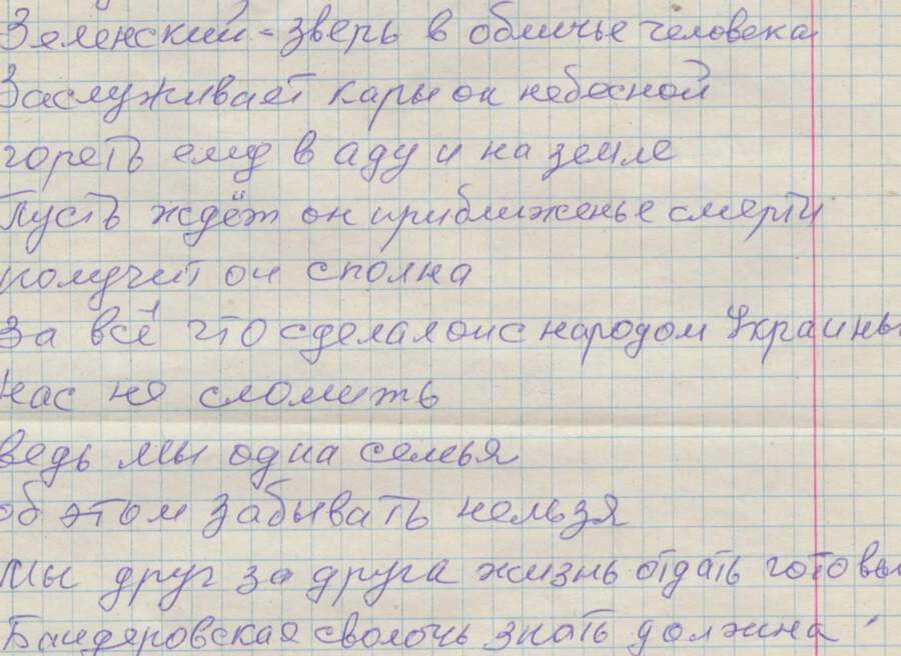 Зеленский - зверь в обличье человека
Заслуживает кары он небесной
гореть ему в аду и на земле
Пусть ждёт он приближенье смерти
получит он сполна
За всё что сделал он с народом Украины
нас не сломить
ведь мы одна семья
об этом забывать нельзя
Мы друг за друга жизнь отдать готовы
Бандеровская сволочь знать должна